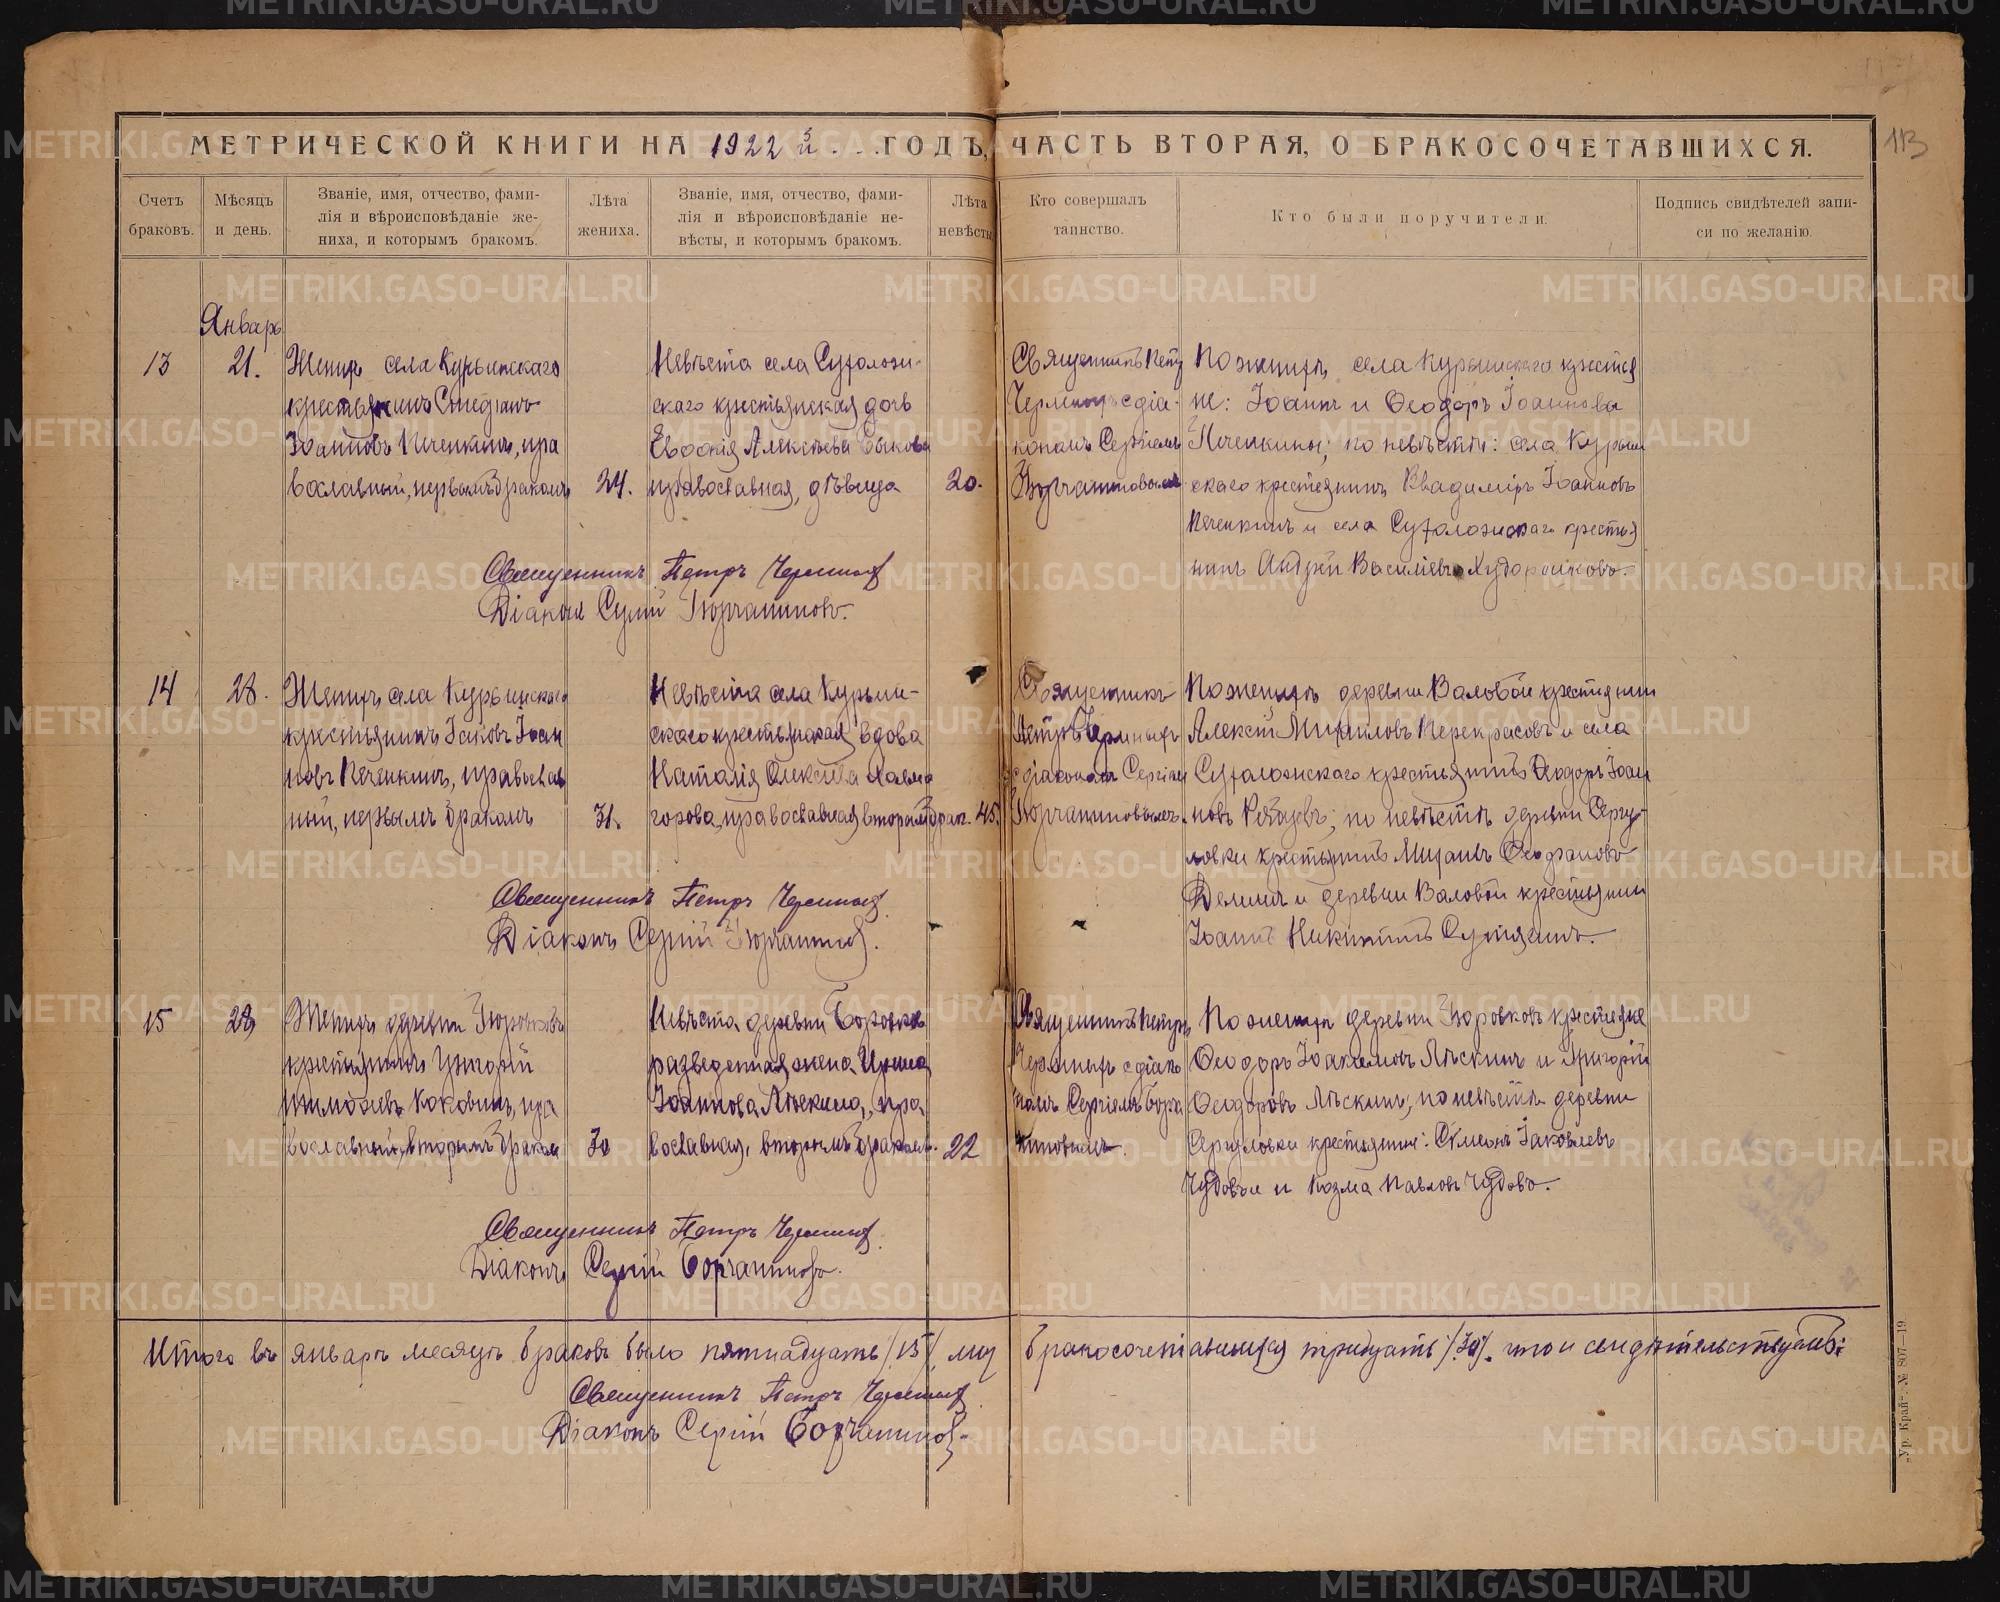 МЕТРИЧЕСКОЙ КНИГИ НА 1922 й ГОДЪ, ЧАСТЬ ВТОРАЯ, О БРАКОСОЧЕТАВШИХСЯ.
113
Счетъ браковъ.
Мѣсяцъ и день.
Званіе, имя, отчество, фами-
лія и вѣроисповѣданіе же-
ниха, и которымъ бракомъ.
Лѣта жениха.
Званіе, имя, отчество, фами-
лія и вѣроисповѣданіе не-
вѣсты, и которымъ бракомъ.
Лѣта невѣсты
Кто совершалъ таинство.
Кто были поручители.
Подпись свидѣтелей запи-
си по желанію.
Январь
13
21.
Женихъ села Курьинскаго
крестьянинъ
Іоанновъ Печенкинъ, пра
вославный, первымъ бракомъ
24.
Невѣста села Сухоложи-
скаго крестьянская дочь
Евдокія Алексѣева Быкова
православная, дѣвица
20.
Священникъ Петр
съ діа-
кономъ Сергіемъ
По женихѣ села Курьинскаго крестья
не: Іоаннъ и Ѳеодоръ Іоанновы
Печенкины; по невѣстѣ: села Курьин
скаго крестьянинъ Владиміръ Іоанновъ
Печенкинъ и села Сухоложскаго крестья
нинъ Андрей Василіевъ
Священникъ Петръ Черемныхъ
Діаконъ Сергій
14
28.
Женихъ села Курьинскаго
крестьянинъ Іаковъ Іоан
новъ Печенкинъ, православ
ный, первымъ бракомъ
31.
Невѣста села Курьин-
скаго крестьянская вдова
Наталія Алексѣева Халмо
горова, православная вторым брак.
45.
Священникъ
Петръ
съ діакономъ Сергіем
По женихѣ деревни Валовой крестьянин
Алексѣй Михаиловъ Перекрасовъ и села
Сухоложскаго крестьянинъ Ѳеодоръ Іоан
новъ; по невѣстѣ деревни Сергу-
ловки крестьянинъ Михаилъ
и деревни Валовой крестьянин
Іоаннъ Никитинъ
Священникъ Петръ Черемныхъ
Діаконъ Сергій
15
28
Женихъ деревни
крестьянинъ Григорій
Тимоѳеевъ Коковинъ, пра
вославный, вторымъ браком
30
Невѣста деревни
разведенная жена Ирина
Іоаннова Лѣскина, пра
вославная, вторымъ бракомъ.
22
Священникъ Петръ
Черемныхъ съ діако
номъ Сергіемъ
По женихѣ деревни крестьяне
Ѳеодоръ Іоакимовъ Лѣскинъ и Григорій
Ѳеодоровъ Лѣскинъ; по невѣстѣ деревни
Сергуловки крестьяне: Симеонъ Іаковлевъ
Чудовъ и Козма Павловъ Чудовъ.
Священникъ Петръ Черемныхъ
Діаконъ Сергій
Итого въ январѣ месяцѣ браковъ было пятнадцать /15/, лиц бракосочетавшихся тридцать /30/. что и свидѣтельствуемъ:
Священникъ Петръ Черемныхъ
Діаконъ Сергій
„Ур. Край“. № 807—19
METRIKI.GASO-URAL.RU